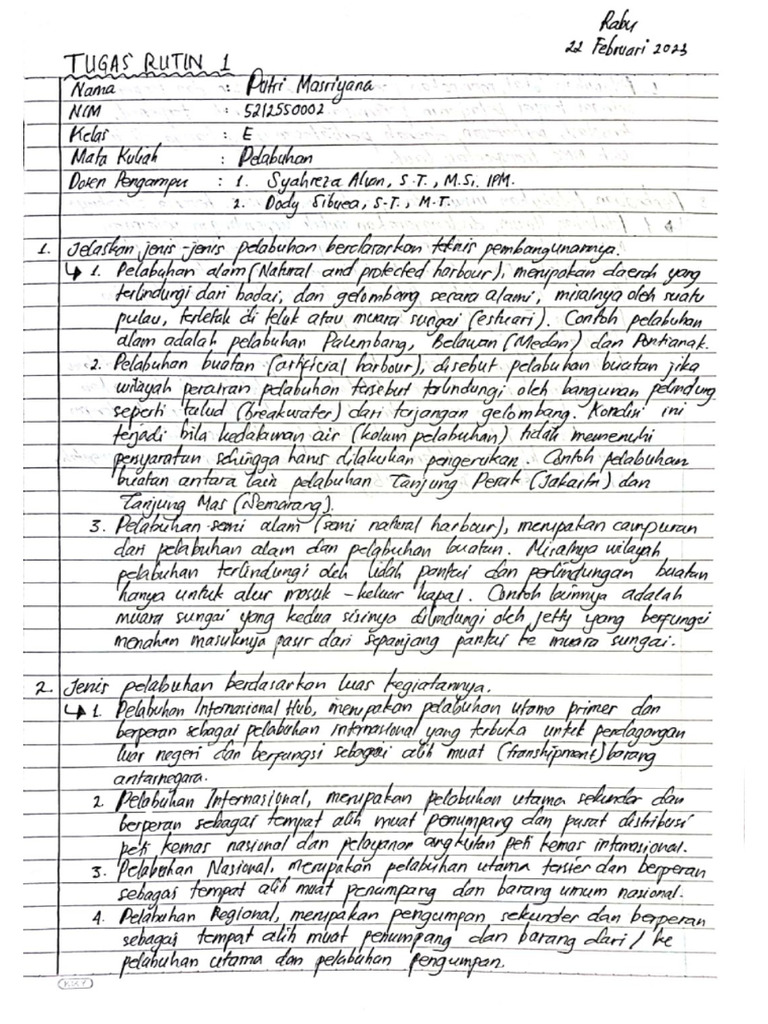 Rabu
22 Februari 2023
TUGAS RUTIN 1
Nama : Putri Masriyana
NIM : 5212550002
Kelas : E
Mata Kuliah : Pelabuhan
Dosen Pengampu : 1. Syahreza Alvan, S.T., M.Si. IPM.
2. Dody Sibuea, S.T., M.T.
1. Jelaskan jenis-jenis pelabuhan berdasarkan teknis pembangunannya.
↳ 1. Pelabuhan alam (Natural and protected harbour), merupakan daerah yang
terlindungi dari badai, dan gelombang secara alami, misalnya oleh suatu
pulau, terletak di teluk atau muara sungai (estuari). Contoh pelabuhan
alam adalah pelabuhan Palembang, Belawan (Medan) dan Pontianak.
2. Pelabuhan buatan (artificial harbour), disebut pelabuhan buatan jika
wilayah perairan pelabuhan tersebut terlindungi oleh bangunan pelindung
seperti talud (breakwater) dari terjangan gelombang. Kondisi ini
terjadi bila kedalaman air (kolam pelabuhan) tidak memenuhi
persyaratan sehingga harus dilakukan pengerukan. Contoh pelabuhan
buatan antara lain pelabuhan Tanjung Perak (Jakarta) dan
Tanjung Mas (Semarang).
3. Pelabuhan semi alam (semi natural harbour), merupakan campuran
dari pelabuhan alam dan pelabuhan buatan. Misalnya wilayah
pelabuhan terlindungi oleh lidah pantai dan perlindungan buatan
hanya untuk alur masuk-keluar kapal. Contoh lainnya adalah
muara sungai yang kedua sisinya dilindungi oleh jetty yang berfungsi
menahan masuknya pasir dari sepanjang pantai ke muara sungai.
2. Jenis pelabuhan berdasarkan luas kegiatannya.
↳ 1. Pelabuhan Internasional Hub, merupakan pelabuhan utama primer dan
berperan sebagai pelabuhan internasional yang terbuka untuk perdagangan
luar negeri dan berfungsi sebagai alih muat (transhipment) barang
antarnegara.
2. Pelabuhan Internasional, merupakan pelabuhan utama sekunder dan
berperan sebagai tempat alih muat penumpang dan pusat distribusi
peti kemas nasional dan pelayanan angkutan peti kemas internasional.
3. Pelabuhan Nasional, merupakan pelabuhan utama tersier dan berperan
sebagai tempat alih muat penumpang dan barang umum nasional.
4. Pelabuhan Regional, merupakan pengumpan sekunder dan berperan
sebagai tempat alih muat penumpang dan barang dari / ke
pelabuhan utama dan pelabuhan pengumpan.